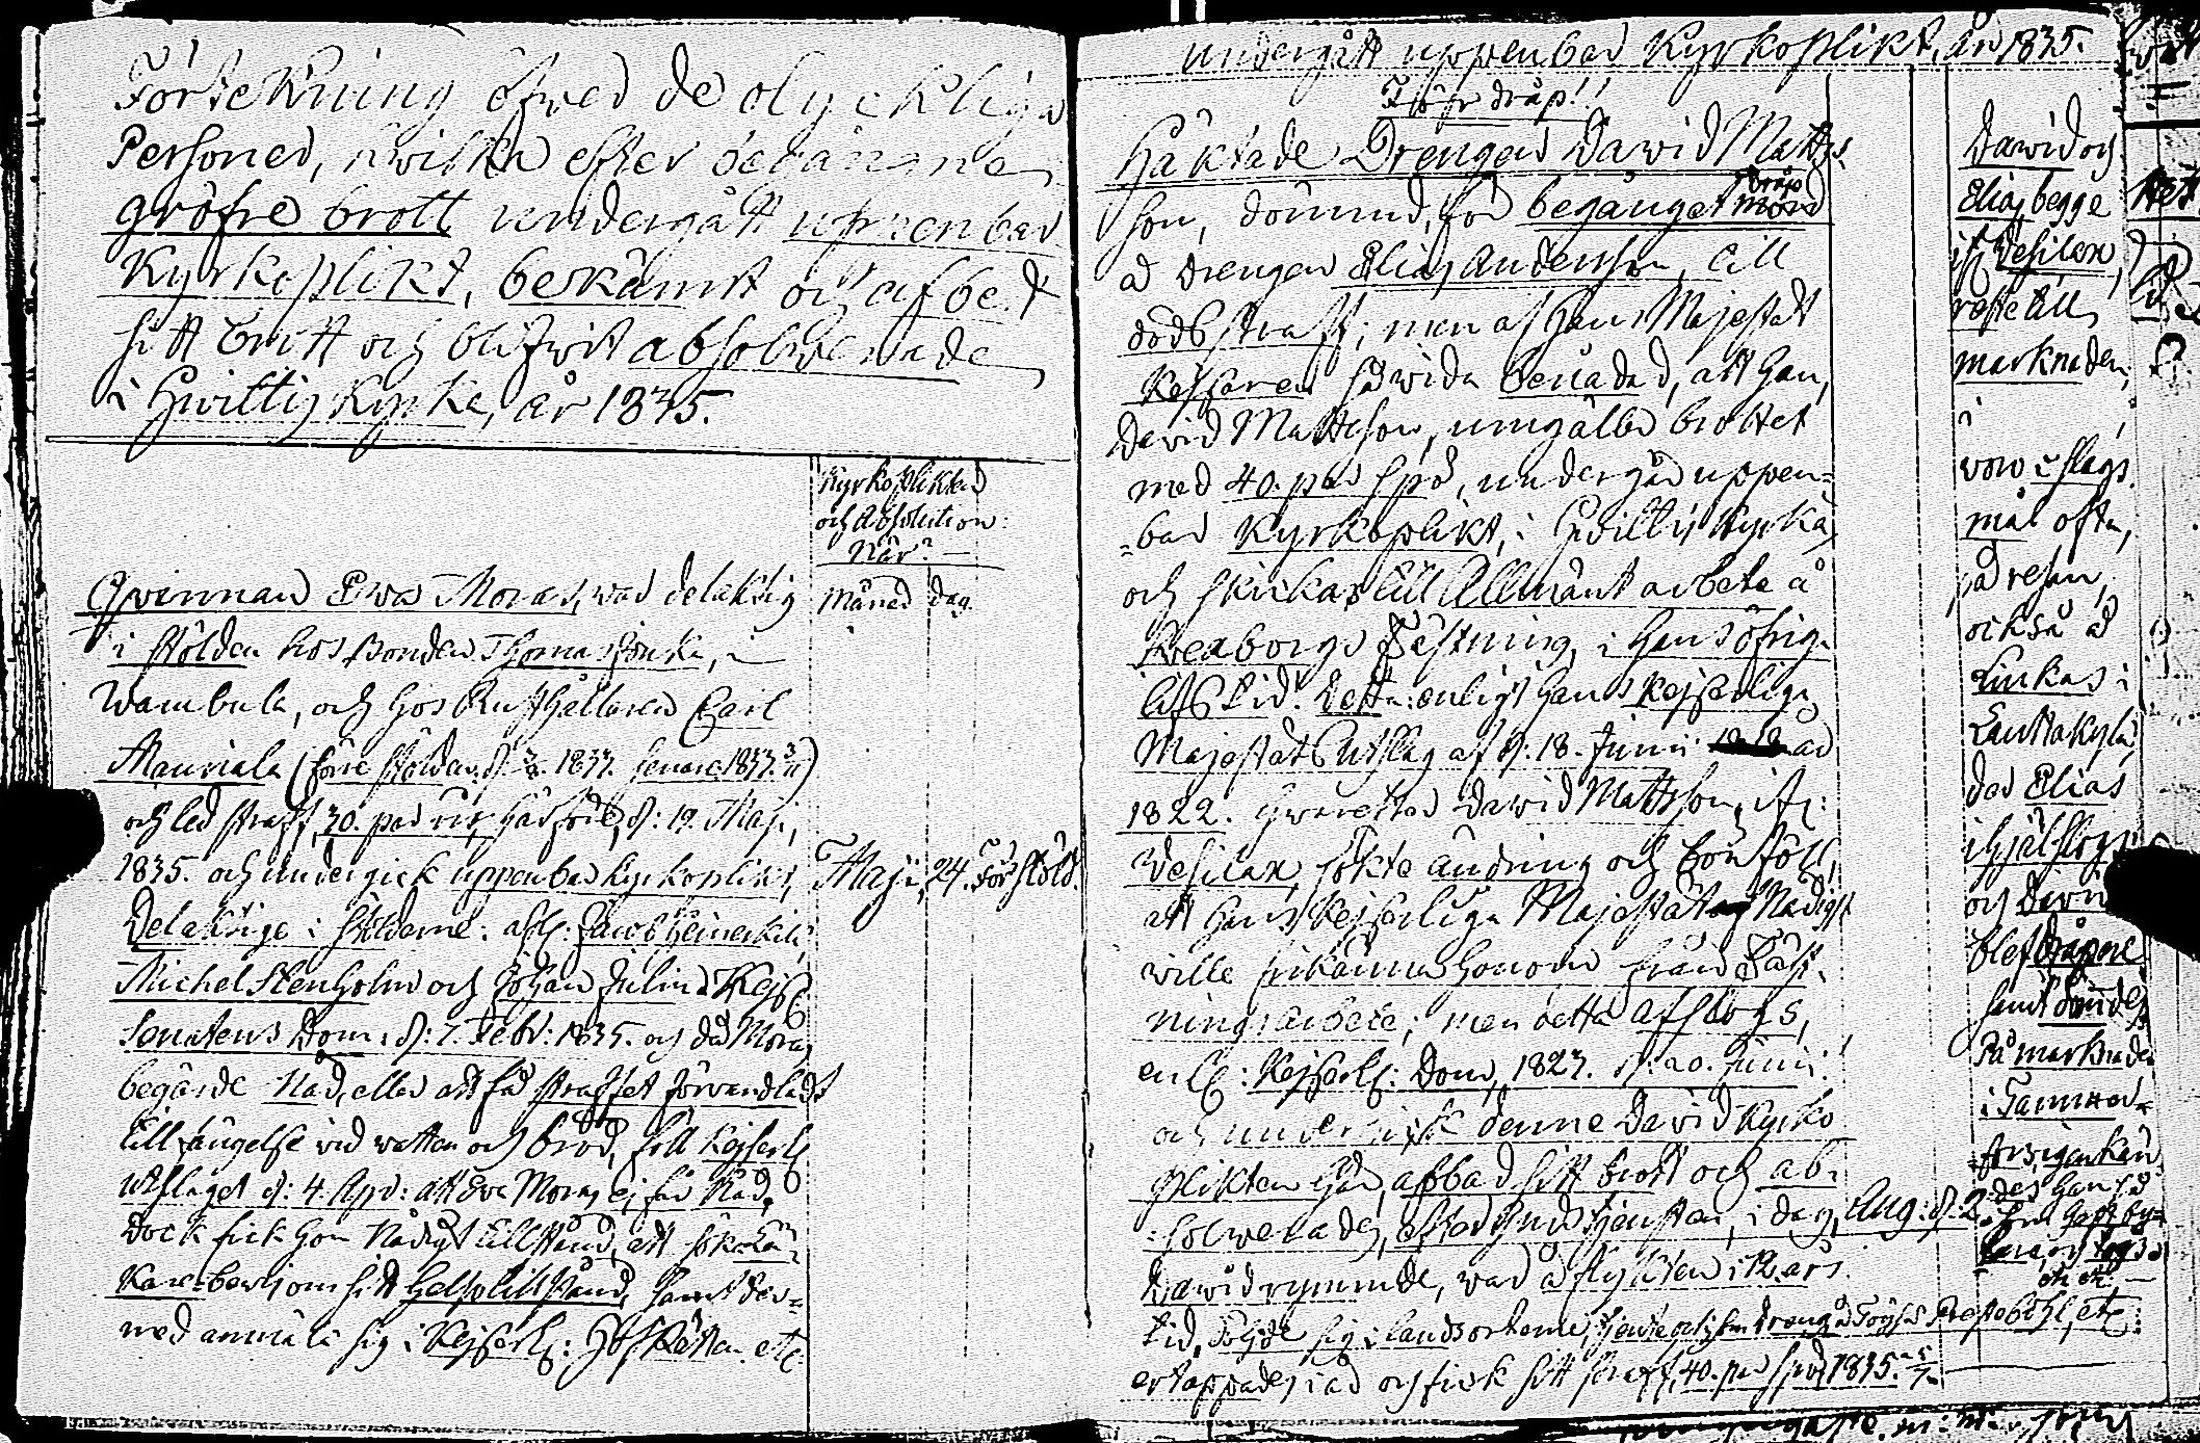 Förtekning öfwer de olycklige
Personer, hwilka efter begångne
gröfre brott undergått uppenbar
Kyrkoplikt, bekändt och afbedt
sitt brott och blifwit absolverade
i Hwittis Kyrka, år 1835.
Kyrkoplikten
och Absolution:
När? —
Månad dag.
Qwinnan Ewa Moras, war delaktig
i stölden hos Bonden Thomas, i
Wambula, och hos Rusthållaren Carl
Mauriala (förre stölden 1833. senare 1833.)
och led straff, 30. par ris, här före, d: 19. Maji,
1835. och undergick uppenbar Kyrkoplikt, Maji, 24. För stöld.
Delaktige i stölderne: Jacob
Michel Stenholm och Johan Julin. Kejs:
Senatens Dom: d: 7. Febr: 1835. och då Moras
begärde Nåd, eller att få straffet förvandladt
till fängelse vid vatten och bröd, föll Kejserl:
Utslaget d: 4. Apr: att Ewa Moras ej får Nåd,
Dock fick hon Nådigt tillstånd, att söka Lä-
kare-bewis om sitt helsotillstånd, samt der-
med anmäla sig i Kejserl: HofRätten etc
undergått uppenbar Kyrkoplikt, år 1835.
För dråp!!
Häktade Drengen Dawid Matts-
dråp
son, dömmd, för begånget mord
å drengen Elias Andersson, till
dödsstraff; men af Hans Majestät
Kejsaren så wida benådad, att han,
David Mattsson, umgäller brottet
med 40. par spö, undergår uppen-
-bar Kyrkoplikt, i Hwittis Kyrka,
och skickas till Allmänt arbete å
Sveaborgs Fästning, i hans öfriga
lifstid. Detta enligt Hans Kejserliga
Majestäts Utslag af d. 18. Junii
1822. Dawid Mattsson, ifr:
Vesilax, sökte ändring och böneföll,
att Hans Kejserliga Majestät Nådigst
wille frikänna honom från Fäst-
ningsarbete; men detta afslogs,
enl: Kejserl: Dom, 1823. d: 20. Junii.
och undergick denne David Kyrko
plikten här, afbad sitt brott och ab-
solverades, efter Gudstjensten, i dag, Aug: d: 2.
Dawid rymmde, war å flykten i 12. års
tid, dolgde sig i landsorterne, tjente och som dreng å Prestebohl, etc:
ertappades i år och fick sitt straff, 40. par spö, 1835.
Dawid och
Elias, begge
ifr Vesilax,
reste till
marknaden,
i
voro i slags-
mål ofta,
på resan,
också å
Linkas i
Lauttakylä,
der Elias
ihjälslogs
och
blef dråpare
På marknaden
i Tammer-
fors
etc etc —